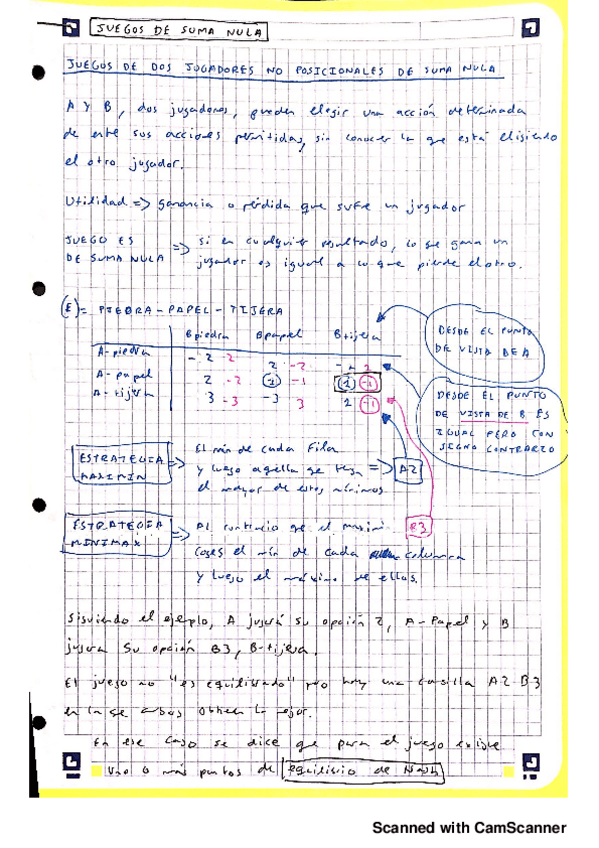 JUEGOS DE SUMA NULA
JUEGOS DE DOS JUGADORES NO POSICIONALES DE SUMA NULA
A Y B, dos jugadores, pueden elegir una acción determinada
de entre sus acciones permitidas, sin conocer la que está eligiendo
el otro jugador.
Utilidad => ganancia o pérdida que sufre un jugador
JUEGO ES DE SUMA NULA => si en cualquier resultado, lo que gana un
jugador es igual a lo que pierde el otro.
(E)= PIEDRA-PAPEL-TIJERA
B piedra B papel B tijera
A-piedra -2 -2 2 -2 2
A-papel 2 -2 1 -1 1 -1
A-tijera 3 -3 -3 3 -1
DESDE EL PUNTO
DE VISTA DE A
DESDE EL PUNTO
DE VISTA DE B ES
IGUAL PERO CON
SIGNO CONTRARIO
ESTRATEGIA MAXIMIN => El mín de cada fila
y luego aquella que tenga => A2
el mayor de estos mínimos
ESTRATEGIA MINIMAX => Al contrario que el maximin. B3
coges el mín de cada columna
y luego el máximo de ellas.
Siguiendo el ejemplo, A jugará su opción 2, A-Papel y B
jugará su opción B3, B-tijera.
El juego no "es equilibrado" pero hay una casilla A2-B3
en la que ambos obtienen lo mejor.
En ese caso se dice que para el juego existe
uno o más puntos de equilibrio de Nash
Scanned with CamScanner